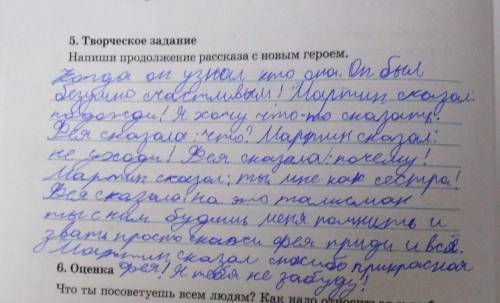 5. Творческое задание
Напиши продолжение рассказа с новым героем.
Когда он узнал кто она. Он был
безумно счастливым! Мартин сказал:
подожди! Я хочу что-то сказать.
Фея сказала: что? Мартин сказал:
не уходи! Фея сказала: почему!
Мартин сказал; ты мне как сестра!
Фея сказала: на это талисман
ты с ним будешь меня помнить и
звать просто скажи фея приди и всё.
Мартин сказал спасибо прикрасная
6. Оценка фея! Я тебя не забуду!
Что ты посоветуешь всем людям? Как надо